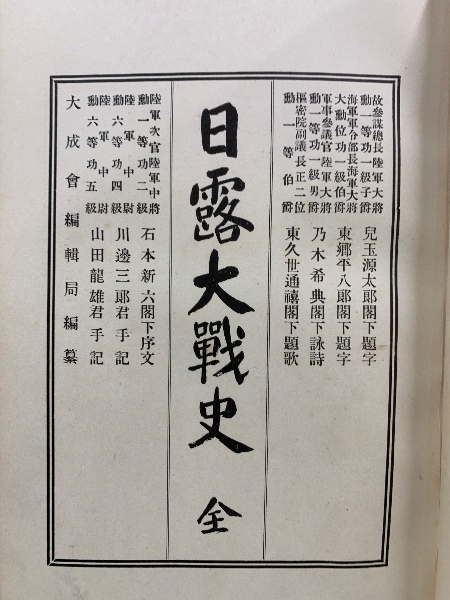 故參謀總長陸軍大將
勳一等功一級子爵
兒玉源太郞閣下題字
海軍軍令部長海軍大將
大勳位功一級伯爵
東鄕平八郞閣下題字
軍事參議官陸軍大將
勳一等功一級男爵
乃木希典閣下詠詩
樞密院副議長正二位
勳一等伯爵
東久世通禧閣下題歌
日露大戰史 全
陸軍次官陸軍中將
勳一等功二級
石本新六閣下序文
陸軍中尉
勳六等功四級
川邊三郞君手記
陸軍中尉
勳六等功五級
山田龍雄君手記
大成會編輯局編纂